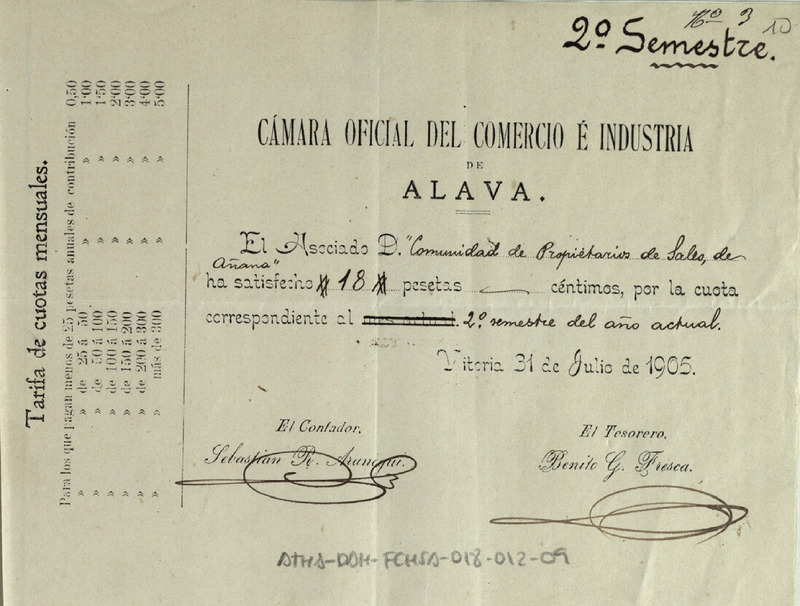 Nº 3
10
2º Semestre.
CÁMARA OFICIAL DEL COMERCIO É INDUSTRIA
DE
ALAVA.
El Asociado D. "Comunidad de Propietarios de Sales, de
Añana"
ha satisfecho # 18 # pesetas — céntimos, por la cuota
correspondiente al mes actual. 2º semestre del año actual.
Vitoria 31 de Julio de 1905.
El Contador.
El Tesorero.
Sebastián R. Aranegui.
Benito G. Fresca.
ATHA-DOH-FCHSA-018-012-09
Tarifa de cuotas mensuales.
Para los que pagan menos de 25 pesetas anuales de contribución 0,50
» » de 25 á 50 » » 1'00
» » de 50 á 100 » » 1'50
» » de 100 á 150 » » 2'00
» » de 150 á 200 » » 3'00
» » de 200 á 300 » » 4'00
» » más de 300 » » 5'00